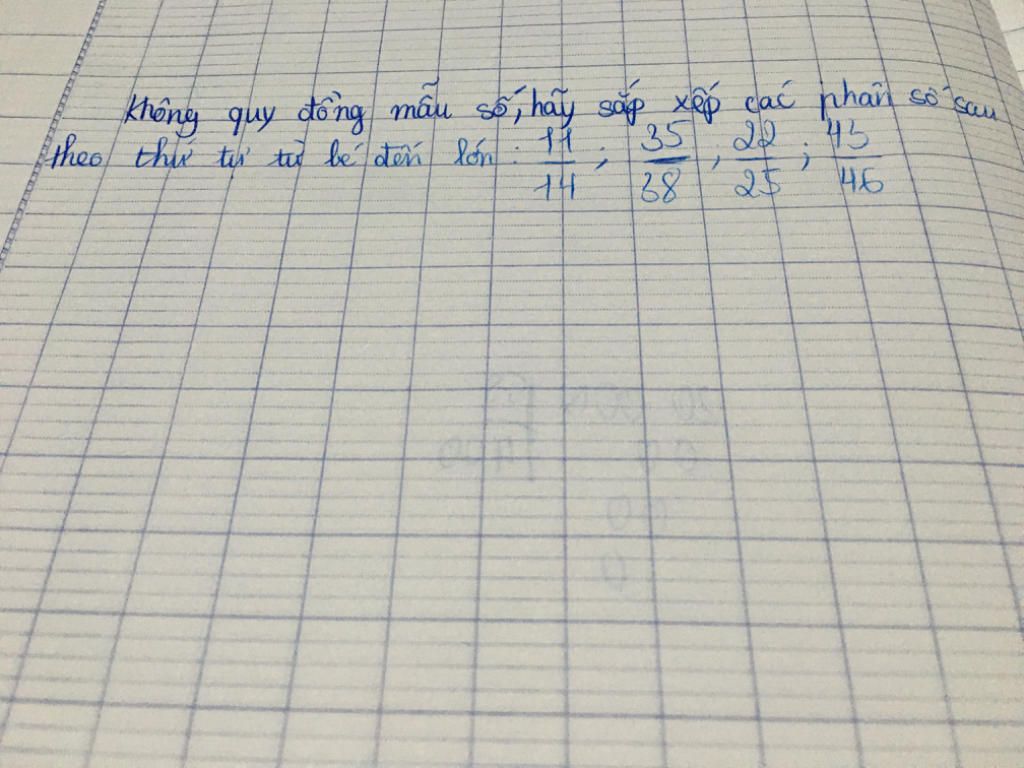 Không quy đồng mẫu số, hãy sắp xếp các phân số sau
theo thứ tự từ bé đến lớn: 11/14; 35/38; 22/25; 43/46